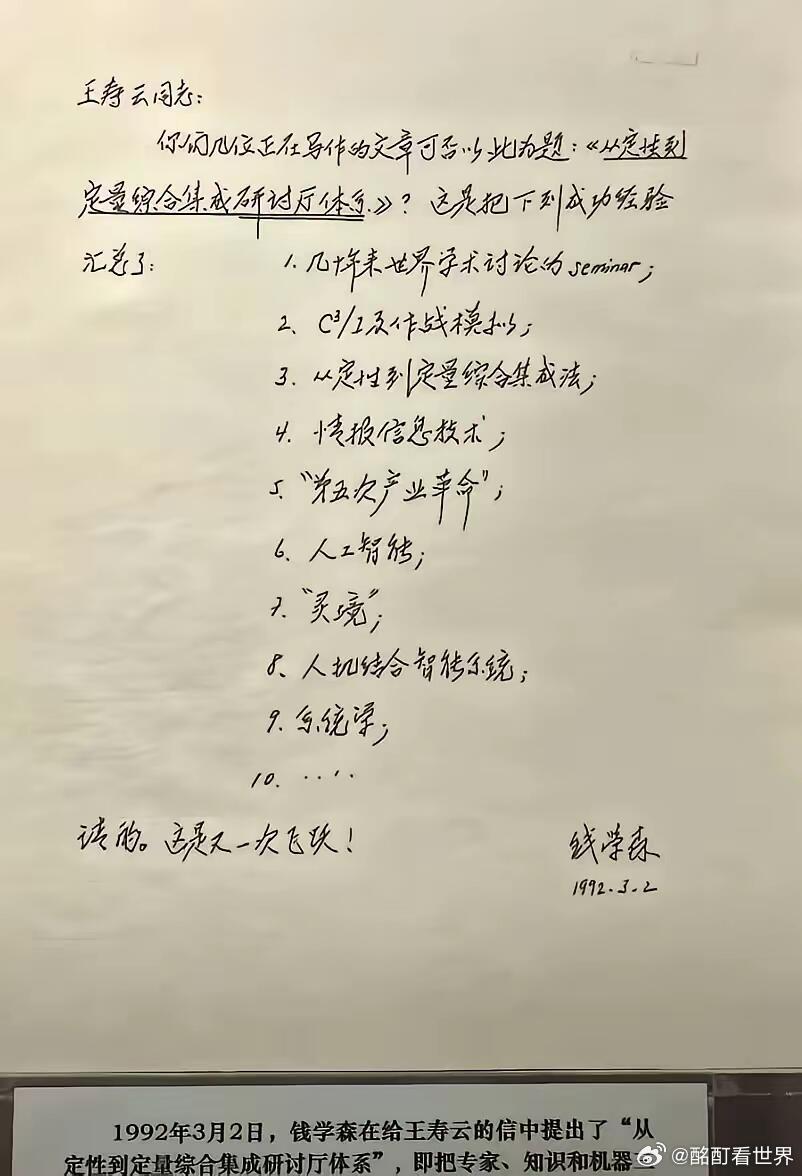 王寿云同志：
你们几位正在写作的文章可否以此为题：《从定性到
定量综合集成研讨厅体系》？这是把下列成功经验
汇总了：
1. 几十年来世界学术讨论的 seminar；
2、C³/I及作战模拟；
3、从定性到定量综合集成法；
4、情报信息技术；
5、“第五次产业革命”；
6、人工智能；
7、“灵境”；
8、人机结合智能系统；
9、系统学；
10、……
请酌。这是又一次飞跃！
钱学森
1992.3.2
1992年3月2日，钱学森在给王寿云的信中提出了“从
定性到定量综合集成研讨厅体系”，即把专家、知识和机器
@酩酊看世界